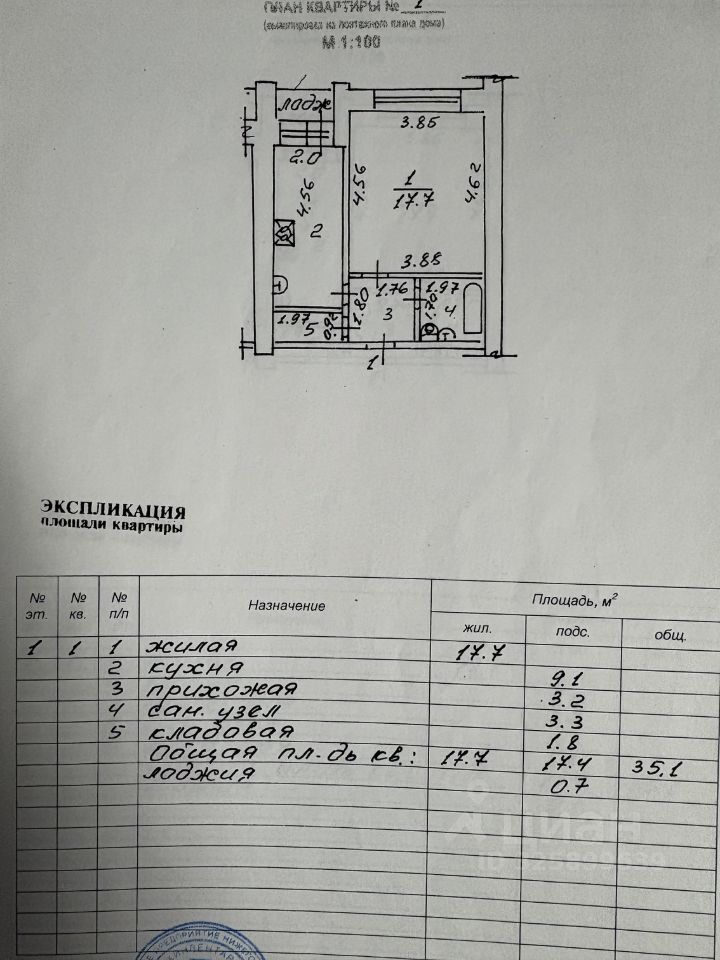 ПЛАН КВАРТИРЫ № 1
(выкопировка из поэтажного плана дома)
М 1:100
лодж
2.0
3.85
4.56
4.56
1
17.7
4.62
2
3.88
1.76
1.97
1.80
3
1.70
4
1.97
5
0.92
1
ЭКСПЛИКАЦИЯ
площади квартиры
№ эт. № кв. № п/п Назначение Площадь, м²
жил. подс. общ.
1 1 1 жилая 17.7
2 кухня 9.1
3 прихожая 3.2
4 сан. узел 3.3
5 кладовая 1.8
Общая пл-дь кв.: 17.7 17.4 35,1
лоджия 0.7